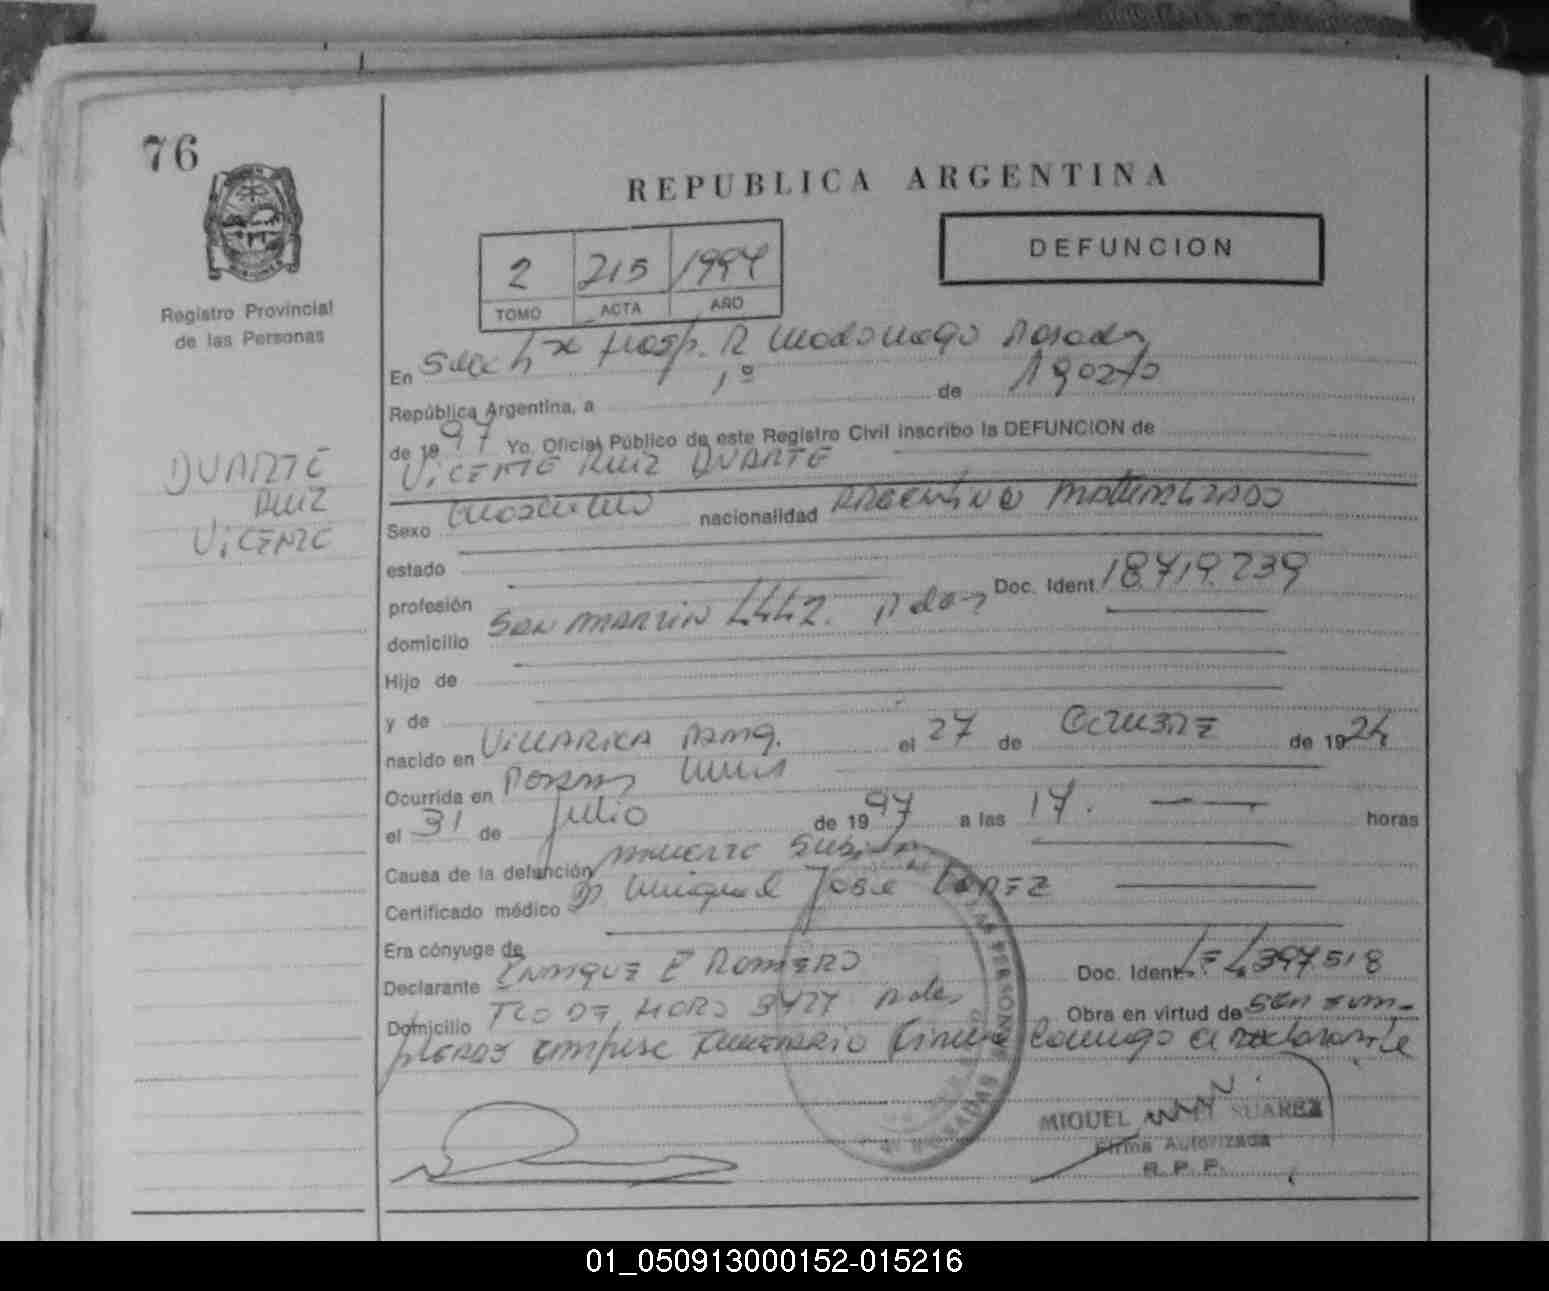 76
REPUBLICA ARGENTINA
DEFUNCION
2 215 1997
TOMO ACTA AÑO
Registro Provincial
de las Personas
En Secc Hosp. R Madariaga Posadas
República Argentina, a 1º de Agosto
de 1997 Yo, Oficial Público de este Registro Civil inscribo la DEFUNCION de
VICENTE RUIZ DUARTE
DUARTE
RUIZ
VICENTE
Sexo Masculino nacionalidad ARGENTINO NATURALIZADO
estado
profesión Doc. Ident. 18.719.239
domicilio SAN MARTIN 4442. Pdas
Hijo de
y de
nacido en VILLARICA PARAG. el 27 de OCTUBRE de 1924
Ocurrida en Posadas Mnes
el 31 de Julio de 1997 a las 17. horas
Causa de la defunción MUERTE SUBITA
Certificado médico Dr Miguel Jose LOPEZ
Era cónyuge de
Declarante ENRIQUE E ROMERO Doc. Ident. LE 4397518
Domicilio TCO DE HARO 3427 Pdas Obra en virtud de SER EM-
PLEADO EMPRESA FUNERARIO Firma Conmigo el declarante
MIGUEL SUAREZ
Firma Autorizada
R. P. P.
01_050913000152-015216